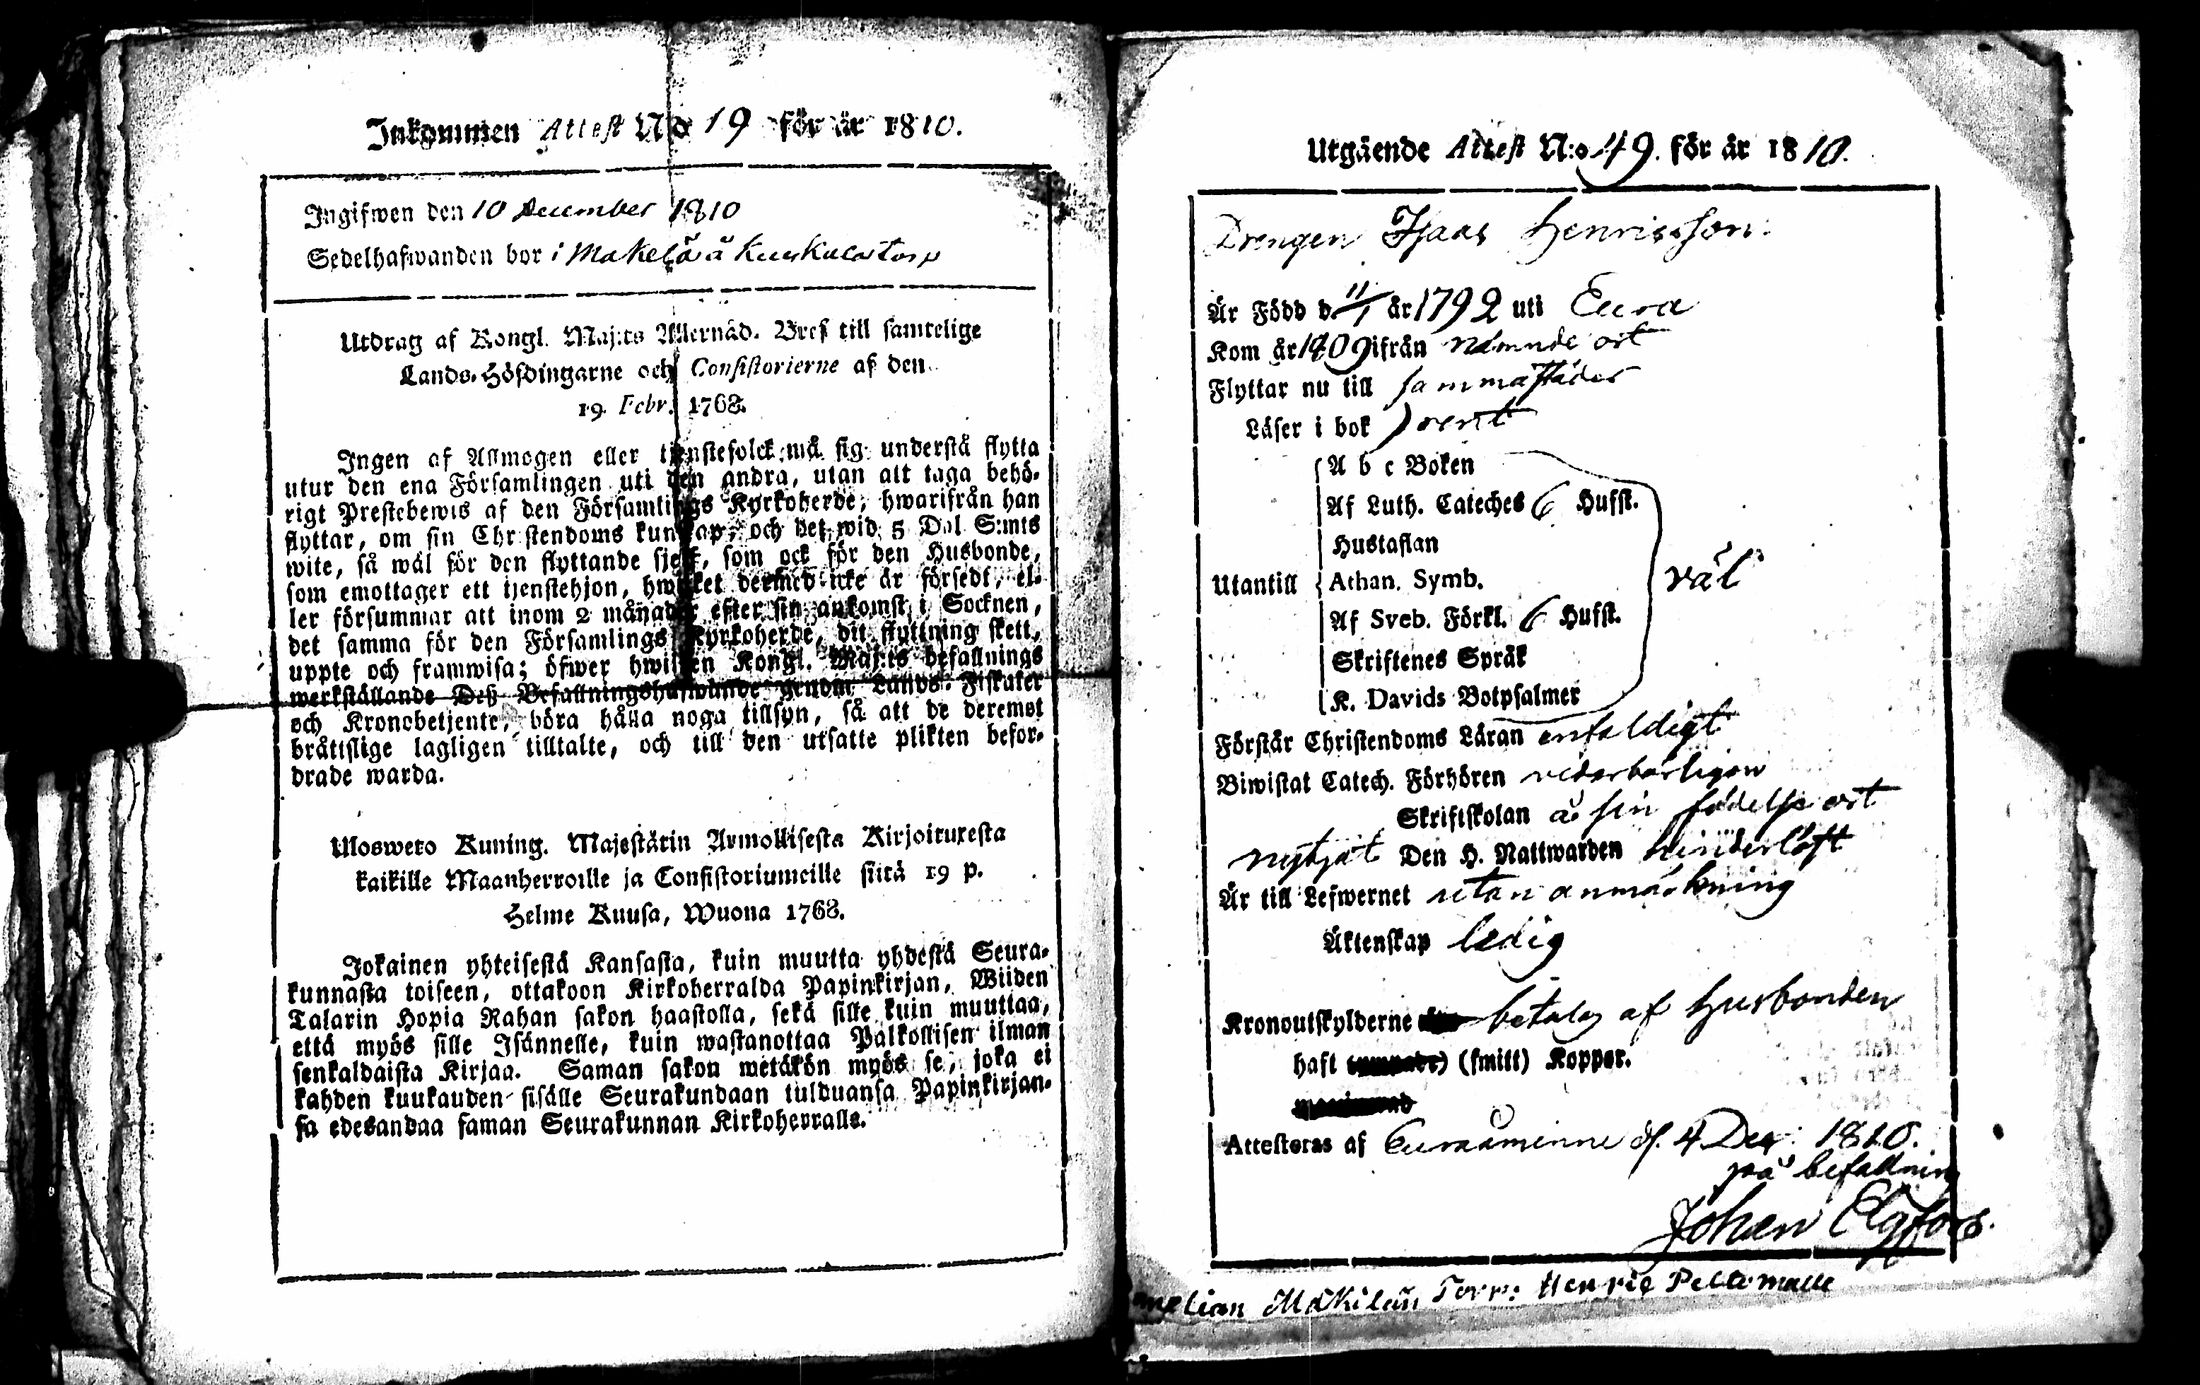 Inkommen Attest No 19 för år 1810.
Ingifwen den 10 December 1810
Sedelhafwanden bor i Makelä å Kuukuastorp
Utdrag af Kongl. Maj:ts Allernåd. Bref till samtelige
Lands-Höfdingarne och Consistorierne af den
19. Febr. 1768.
Ingen af Allmogen eller tjenstefolck må sig understå flytta
utur den ena Församlingen uti den andra, utan att taga behö-
rigt Prestebewis af den Församlings Kyrkoherde, hwarifrån han
flyttar, om sin Christendoms kunskap, och det wid 5 Dal S:mts
wite, så wäl för den flyttande sjelf, som ock för den Husbonde,
som emottager ett tjenstehjon, hwilket dermed icke är försedt, el-
ler försummar att inom 2 månader efter sin ankomst i Socknen,
det samma för den Församlings Kyrkoherde, dit flyttning skett,
uppte och framwisa; öfwer hwilken Kongl. Maj:ts befallnings
werkställande Deß Befallningshafwande genom Lands-Fiskaler
och Kronobetjente, böra hålla noga tillsyn, så att de deremot
bråttslige lagligen tilltalte, och till den utsatte plikten befor-
drade warda.
Uloswero Kuning. Majestätin Armollisesta Kirjoituxesta
kaikille Maanherroille ja Consistoriumeille siitä 19 p.
Helme Kuusa, Wuona 1768.
Jokainen yhteisestä Kansasta, kuin muutta yhdestä Seura-
kunnasta toiseen, ottakoon Kirkoherralda Papinkirjan, Wiiden
Talarin Hopia Rahan sakon haastolla, sekä sille kuin muuttaa,
että myös sille Isännelle, kuin wastanottaa Palkollisen ilman
senkaldaista Kirjaa. Saman sakon wetäkön myös se, joka ei
kahden kuukauden sisälle Seurakundaan tulduansa Papinkirjan-
sa edesandaa saman Seurakunnan Kirkoherralle.
Utgående Attest N:o 49. för år 1810.
Drengen Isaac Henricsson.
Är Född d. 11/1 år 1792 uti Eura
Kom år 1809 ifrån nämnde ort
Flyttar nu till sammastädes
Läser i bok rent
A b c Boken
Af Luth. Cateches 6 Hufst.
Hustaflan
Utantill Athan. Symb. väl
Af Sveb. Förkl. 6 Hufst.
Skriftenes Språk
K. Davids Botpsalmer
Förstår Christendoms Läran enfaldigt
Biwistat Catech. Förhören vederbörligen
Skriftskolan å sin födelse ort
nytjat Den H. Nattwarden hinderlöst
Är till Lefwernet utan anmärkning
Äktenskap ledig
Kronoutskylderne betalas af Husbonden
haft (smitt) Koppor.
Attesteras af Euraåminne d. 4 Dec. 1810.
på befallning
Johan Elgfors.
Makilän Torp: Henric Peltomalle